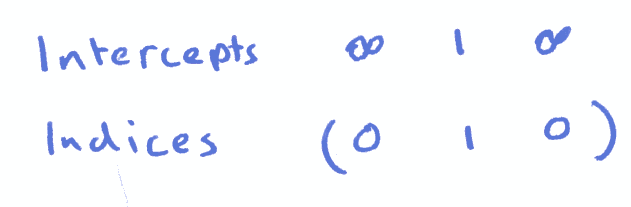 Intercepts ∞ 1 ∞
Indices (0 1 0)